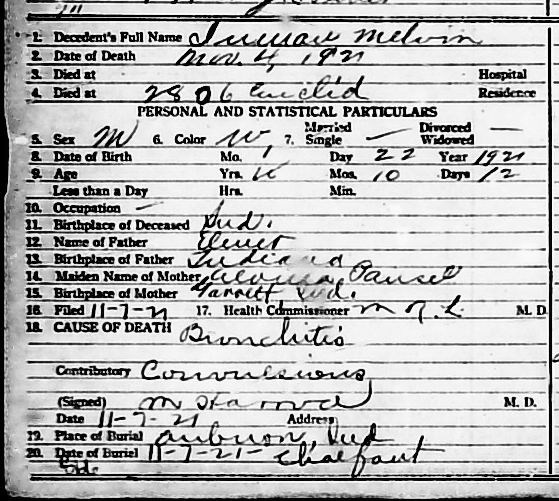 1. Decedent's Full Name Inman Melvin
2. Date of Death Nov. 4, 1921
3. Died at Hospital
4. Died at 2806 Euclid Residence
PERSONAL AND STATISTICAL PARTICULARS
5. Sex M 6. Color W. 7. Married Single — Divorced Widowed —
8. Date of Birth Mo. 1 Day 22 Year 1921
9. Age Yrs. Mos. 10 Days 12
Less than a Day Hrs. Min.
10. Occupation —
11. Birthplace of Deceased Ind.
12. Name of Father Elmer
13. Birthplace of Father Indiana
14. Maiden Name of Mother Pansel
15. Birthplace of Mother Garrett Ind.
16. Filed 11-7-21 17. Health Commissioner M. D.
18. CAUSE OF DEATH Bronchitis
Contributory Convulsions
(Signed) M. D.
Date 11-7-21 Address
19. Place of Burial Auburn, Ind
20. Date of Burial 11-7-21- Chalfant